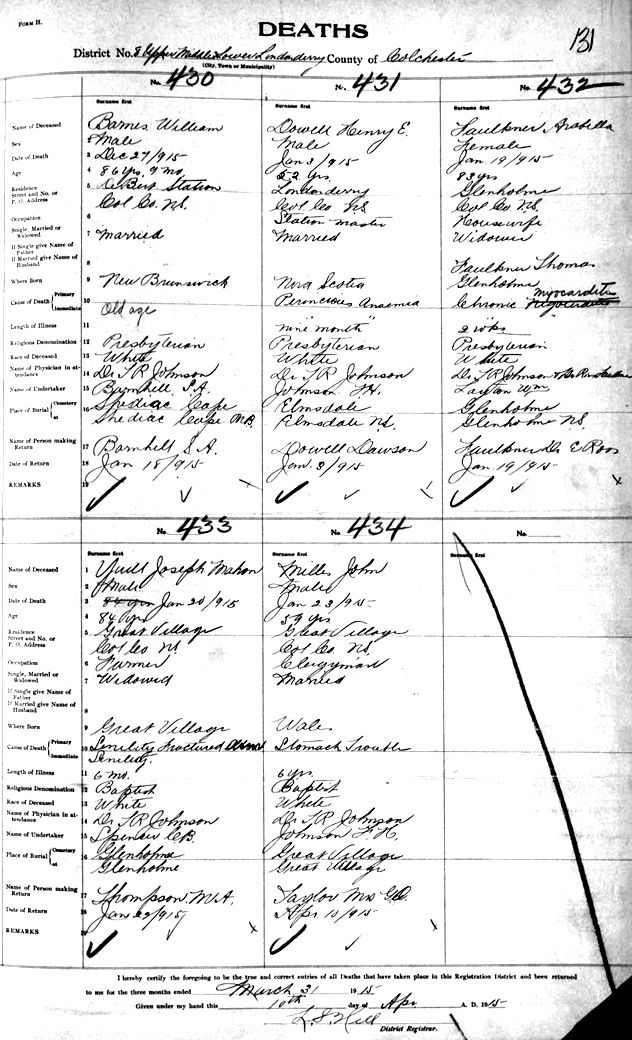 FORM H.
DEATHS
131
District No. 8 Upper Middle Lower Londonderry County of Colchester
(City, Town or Municipality)
No. 430 No. 431 No. 432
Surname first Surname first Surname first
Name of Deceased 1 Barnes William Dowell Henry E. Faulkner Arabella
Sex 2 Male Male Female
Date of Death 3 Dec 27/915 Jan 3/915 Jan 19/915
Age 4 86 yrs, 9 mos. 52 yrs. 83 yrs
Residence Street and No. or P. O. Address 5 DeBert Station Londonderry Glenholme
Col Co. N.S. Col Co NS Col Co N.S.
Occupation 6 Station master Housewife
Single, Married or Widowed 7 Married Married Widower
If Single give Name of Father
If Married give Name of Husband 8 Faulkner Thomas
Where Born 9 New Brunswick Nova Scotia Glenholme
Cause of Death Primary Immediate 10 Old age Perencious Anaemia Chronic myocardite
Length of Illness 11 nine "month" 2 wks
Religious Denomination 12 Presbyterian Presbyterian Presbyterian
Race of Deceased 13 White White White
Name of Physician in attendance 14 Dr T R Johnson Dr T R Johnson Dr T R Johnson
Name of Undertaker 15 Barnhill S.A. Johnson F.H. Layton Wm
Place of Burial Cemetery at 16 Shediac Cape Elmsdale Glenholme
Shediac Cape N.B. Elmsdale N.S. Glenholme NS.
Name of Person making Return 17 Barnhill S.A. Dowell Dawson Faulkner Dr E Ross
Date of Return 18 Jan 18/915 Jan. 3/915 Jan 19/915
REMARKS 19
No. 433 No. 434 No.
Surname first Surname first Surname first
Name of Deceased 1 Yuill Joseph Mahon Miller John
Sex 2 Male Male
Date of Death 3 84 yrs Jan 20/915 Jan 23/915
Age 4 84 yrs 59 yrs
Residence Street and No. or P. O. Address 5 Great Village Great Village
Col Co NS. Col Co. NS.
Occupation 6 Farmer Clergyman
Single, Married or Widowed 7 Widowed Married
If Single give Name of Father
If Married give Name of Husband 8
Where Born 9 Great Village Wales
Cause of Death Primary Immediate 10 Senility Fractured Stomach Trouble
Senility.
Length of Illness 11 6 mo. 6 yrs
Religious Denomination 12 Baptist Baptist
Race of Deceased 13 White White
Name of Physician in attendance 14 Dr T R Johnson Dr T R Johnson
Name of Undertaker 15 Spencer C.B. Johnson F.H.
Place of Burial Cemetery at 16 Glenholme Great Village
Glenholme Great Village
Name of Person making Return 17 Thompson M.A. Taylor Mrs G.O.
Date of Return 18 Jan 22/915 Apr 10/915
REMARKS 19
I hereby certify the foregoing to be the true and correct entries of all Deaths that have taken place in this Registration District and been returned
to me for the three months ended March 31 1915
Given under my hand this 10th day of Apr A. D. 1915
L S Hill
District Registrar.